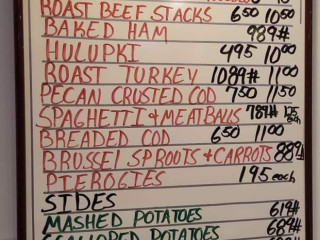 ROAST BEEF STACKS 650 1050
BAKED HAM 989#
HULUPKI 495 1000
ROAST TURKEY 1089# 1100
PECAN CRUSTED COD 750 1150
SPAGHETTI & MEATBALLS 789#
BREADED COD 650 1100
BRUSSEL SPROUTS + CARROTS 889#
PIEROGIES 195 each
SIDES
MASHED POTATOES 619#
SCALLOPED POTATOES 689#